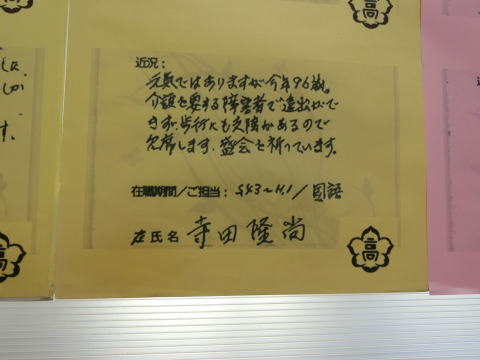 近況：
元気ではありますが今年96歳。
介護を要する障害者で遠出がで
きず、歩行にも支障があるので
欠席します。盛会を祈っています。
在職期間／ご担当： S43～H.1／国語
氏名 寺田隆尚
高
高
す。